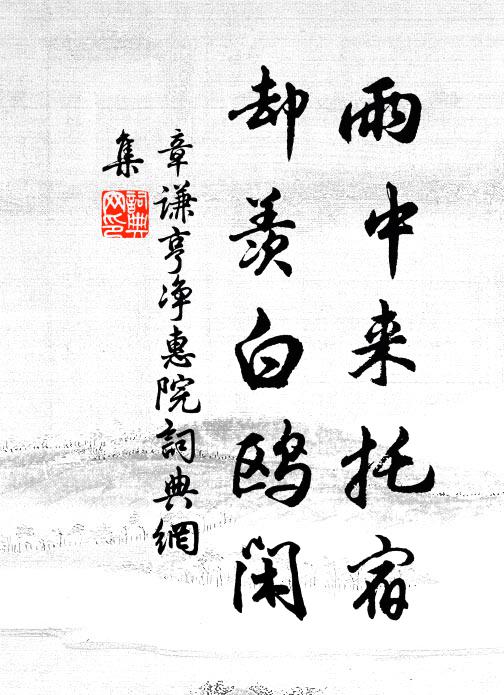 雨中来托宿
却羡白鸥闲
章谦亨净惠院詞典網
集
詞典网印